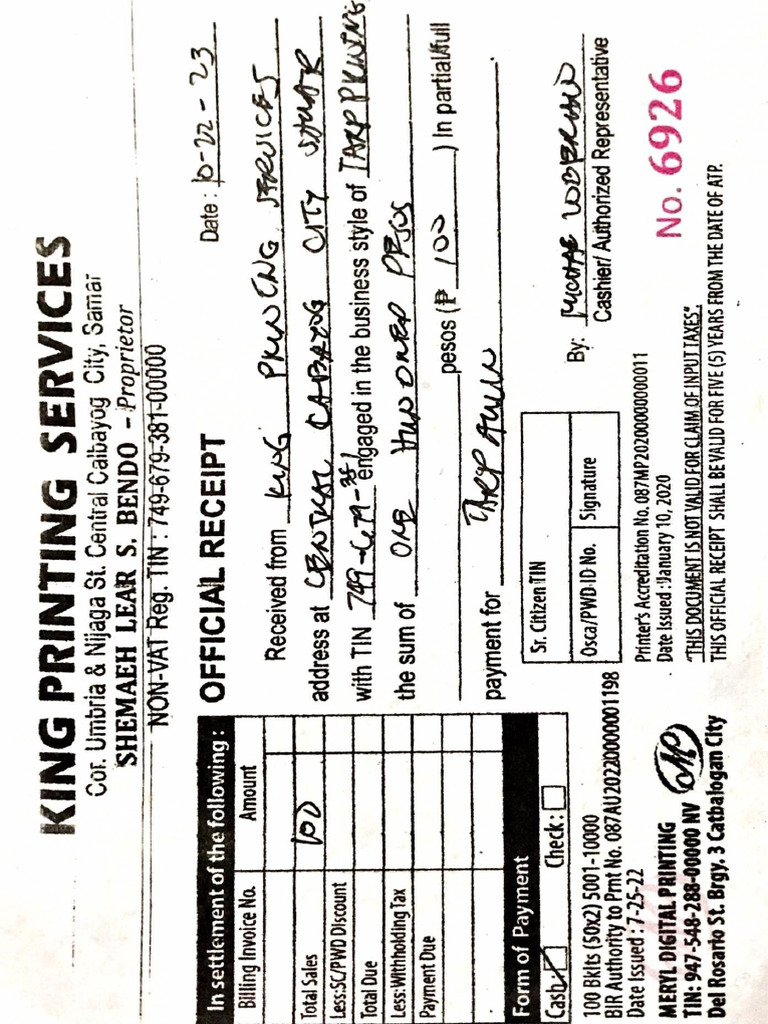 KING PRINTING SERVICES
Cor. Umbria & Nijaga St. Central Calbayog City, Samar
SHEMAEH LEAR S. BENDO - Proprietor
NON-VAT Reg. TIN : 749-679-381-00000
In settlement of the following :
Billing Invoice No. Amount
Total Sales 100
Less:SC/PWD Discount
Total Due
Less:Withholding Tax
Payment Due
Form of Payment
Cash Check :
OFFICIAL RECEIPT
Date : 10-22-23
Received from KING PRINTING SERVICES
address at CENTRAL CALBAYOG CITY SAMAR
with TIN 749-679-381 engaged in the business style of TARP PRINTING
the sum of ONE HUNDRED PESOS
pesos (₱ 100 ) In partial/full
payment for TARP
Sr. Citizen TIN
Osca/PWD ID No. Signature
By:
Cashier/ Authorized Representative
100 Bklts (50x2) 5001-10000
BIR Authority to Prnt No. 087AU20220000001198
Date Issued : 7-25-22
MERYL DIGITAL PRINTING
TIN: 947-548-288-00000 NV
Del Rosario St. Brgy. 3 Catbalogan City
Printer's Accreditation No. 087MP20200000000011
Date Issued : January 10, 2020
"THIS DOCUMENT IS NOT VALID FOR CLAIM OF INPUT TAXES".
THIS OFFICIAL RECEIPT SHALL BE VALID FOR FIVE (5) YEARS FROM THE DATE OF ATP.
No. 6926